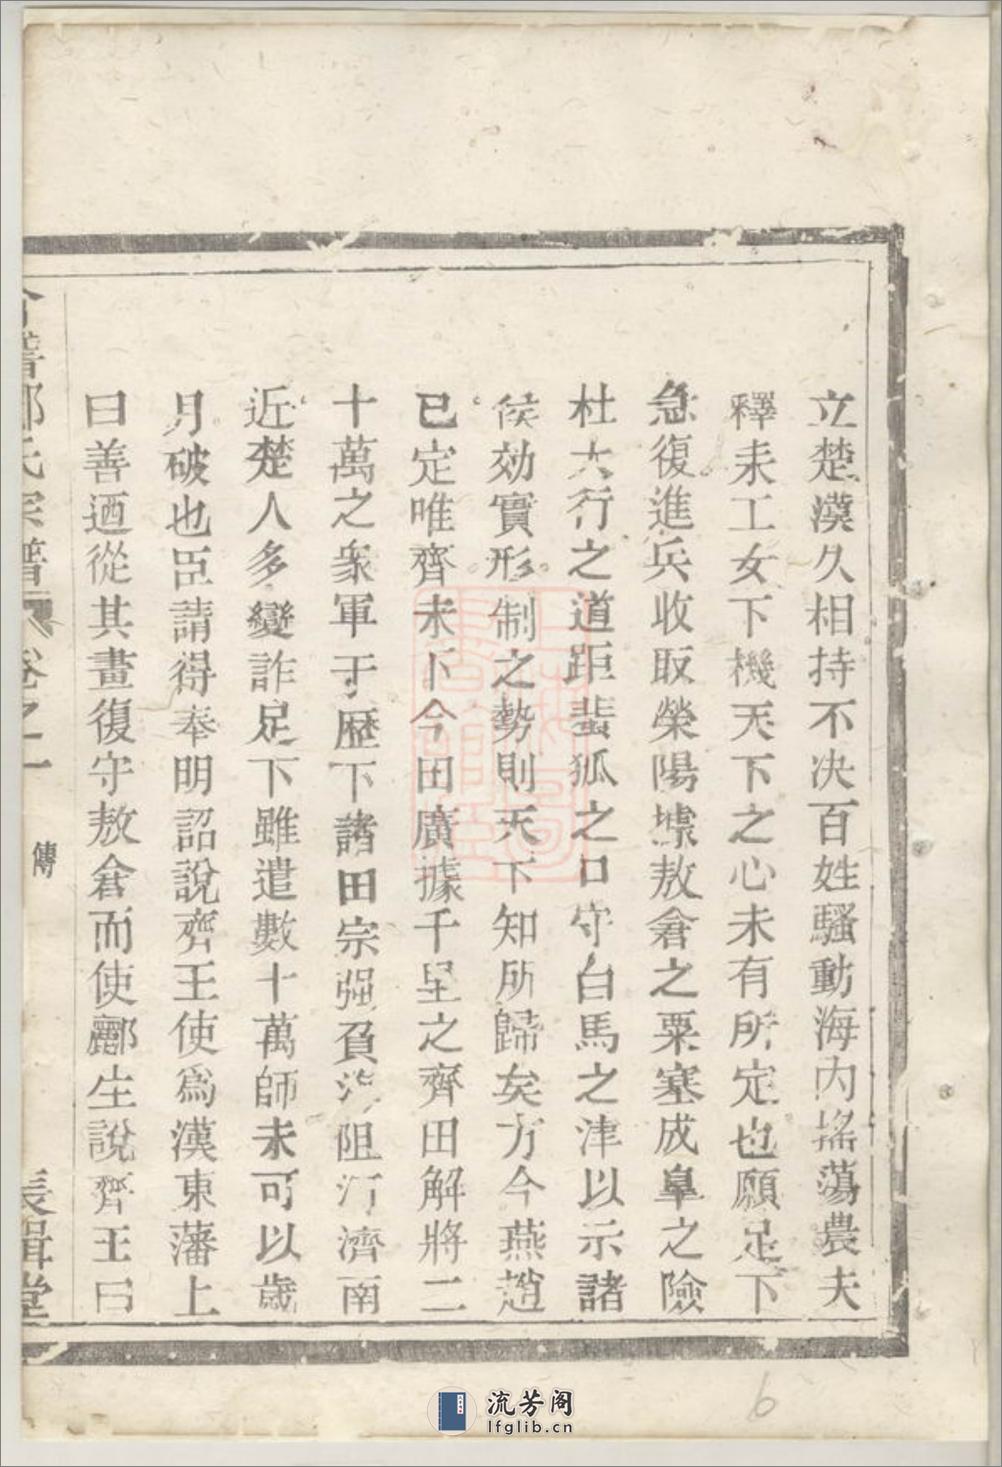 立楚漢久相持不決百姓騷動海内搖蕩農夫
釋耒工女下機天下之心未有所定也願足下
急復進兵收取榮陽據敖倉之粟塞成臯之險
杜大行之道距蜚狐之口守白馬之津以示諸
侯効實形制之勢則天下知所歸矣方今燕趙
已定唯齊未下今田廣據千里之齊田解將二
十萬之衆軍于歷下諸田宗强負海阻河濟南
近楚人多變詐足下雖遣數十萬師未可以歲
月破也臣請得奉明詔說齊王使爲漢東藩上
曰善迺從其畫復守敖倉而使酈生說齊王曰
氏宗譜 卷之一 傳 長緝堂
6
流芳阁
lfglib.cn